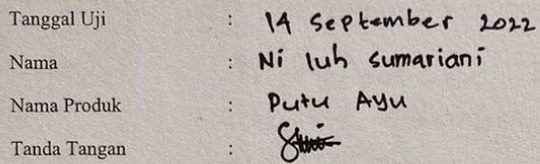 Tanggal Uji : 14 September 2022
Nama : Ni luh sumariani
Nama Produk : Putu Ayu
Tanda Tangan :